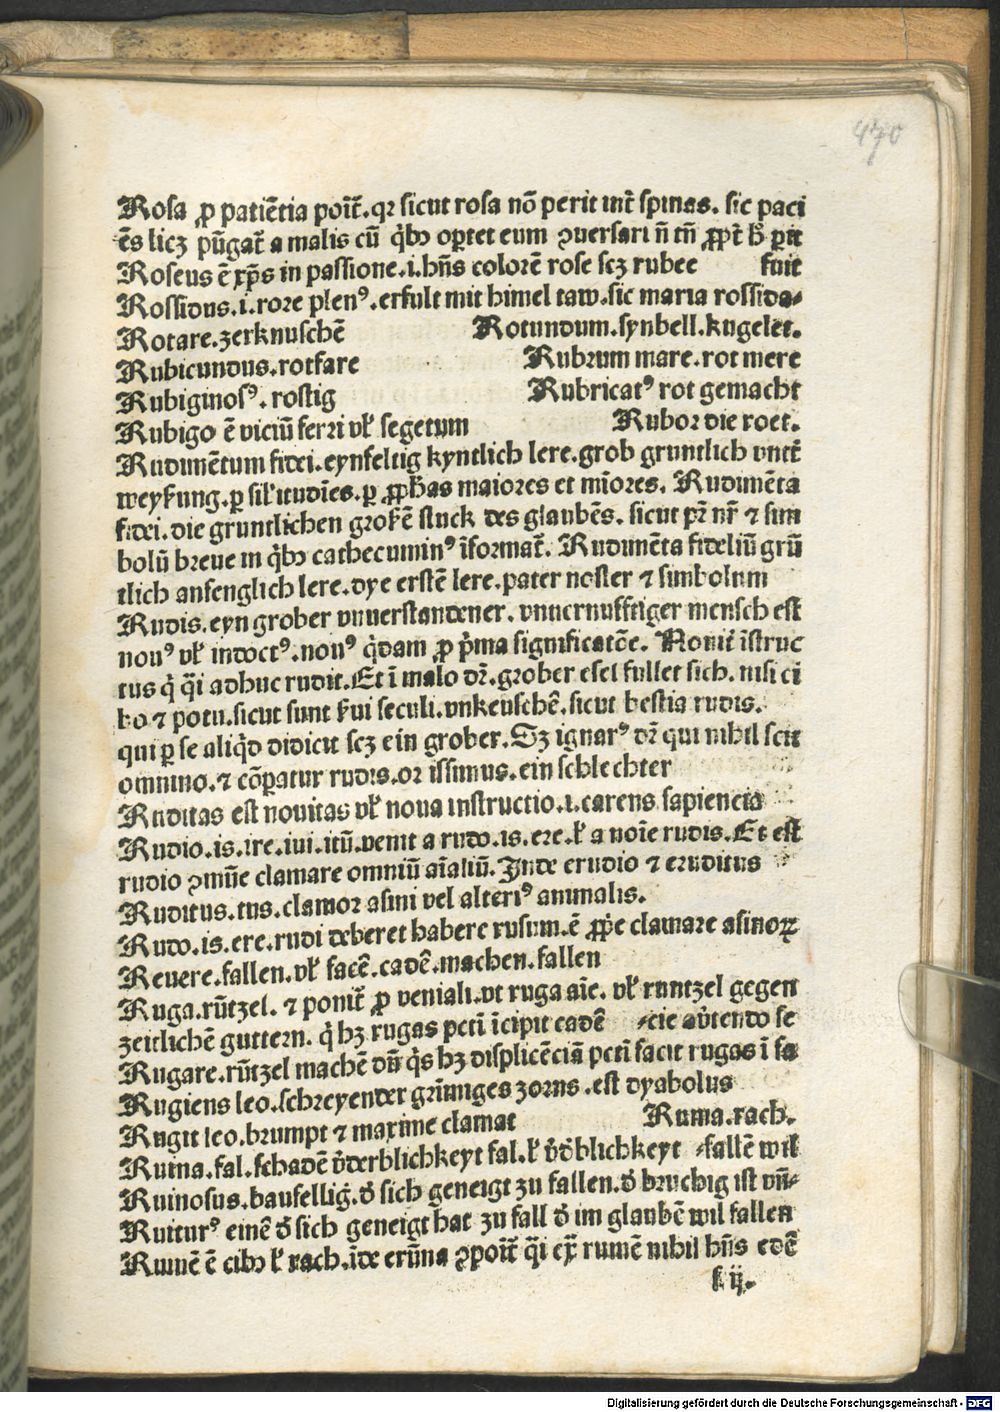 470
Rosa ꝓ patiẽtia poĩt̃. qꝛ sicut rosa nõ perit int̃ spinas. sic paci
ẽs licꝫ pũgat̃ a malis cũ q̇bꝫ oꝑtet eum ꝯuersari ñ tñ ꝓpt̃ h̃ ꝑit
Roseus ẽ xp̃s in passione .i. hñs colorẽ rose scꝫ rubee fuit
Rossidus .i. rore plenꝰ. erfult mit himel taw. sic maria rossida⸗
Rotare. zerknuschẽ Rotundum. synbell. kugelet.
Rubicundus. rotfare Rubrum mare. rot mere
Rubiginosꝰ. rostig Rubricatꝰ rot gemacht
Rubigo ẽ viciũ ferri vł segetum Rubor die roet.
Rudimẽtum fidei. eynfeltig kyntlich lere. grob gruntlich vnt̃
weysung. ꝑ siłitudĩes. ꝑ ꝓph̃as maiores et mĩores. Rudimẽta
fidei. die gruntlichen grosẽ stuck des glaubẽs. sicut pr̃ nr̃ ⁊ sim
bolũ breue in q̇bꝫ cathecuminꝰ ĩformat̃. Rudimẽta fideliũ grũ
tlich anfenglich lere. dye erstẽ lere. pater noster ⁊ simbolum
Rudis. eyn grober vnuerstandener. vnuernufftiger mensch est
nouꝰ vł indoctꝰ. nouꝰ q̇dam ꝓ p̃ma significatõe. Nouit̃ ĩstruc
tus q̇ q̃i adhuc rudit. Et ĩ malo dr̃. grober esel fullet sich. nisi ci
bo ⁊ potu. sicut sunt s̃ui seculi. vnkeuschẽ. sicut bestia rudis.
qui ꝑ se aliq̇d didicit scꝫ ein grober. Sꝫ ignarꝰ dr̃ qui nihil scit
omnino. ⁊ cõparatur rudis. or issimus. ein schlechter
Ruditas est nouitas vł noua instructio .i. carens sapiencia
Rudio. is. ire. iui. itũ. venit a rudo. is. ere. ł a noĩe rudis. Et est
rudio ꝯmũe clamare omniũ aĩaliũ. Inde erudio ⁊ eruditus
Ruditus. tus. clamor asini vel alteriꝰ animalis.
Rudo. is. ere. rudi deberet habere rusum. ẽ ꝓpe clamare asinoꝝ
Reuere. fallen. vł facẽ. cadẽ. machen. fallen
Ruga. rũtzel. ⁊ ponit̃ ꝓ veniali. vt ruga aĩe. vł runtzel gegen
zeitlichẽ guttern. q̇ hꝫ rugas pcti ĩcipit cadẽ ⸗cie aṽtendo se
Rugare. rũtzel machẽ vñ q̇s hꝫ displicẽciã pcti facit rugas ĩ fa
Rugiens leo. schreyender grĩmiges zorns. est dyabolus
Rugit leo. brumpt ⁊ maxime clamat Ruma. rach.
Ruina. fal. schadẽ v̇derblichkeyt fal. ł v̇ďblichkeyt ⸗fallẽ wil
Ruinosus. baufellig. ď sich geneigt zu fallen. ď bruchig ist vñ⸗
Ruiturꝰ einẽ ď sich geneigt hat zu fall ď im glaubẽ wil fallen
Rumẽ ẽ cibꝫ ł rach. ĩde erũna ꝯpoĩt̃ q̃i ex̃ rumẽ nihil hñs edẽ
k ij.
Digitalisierung gefördert durch die Deutsche Forschungsgemeinschaft - DFG